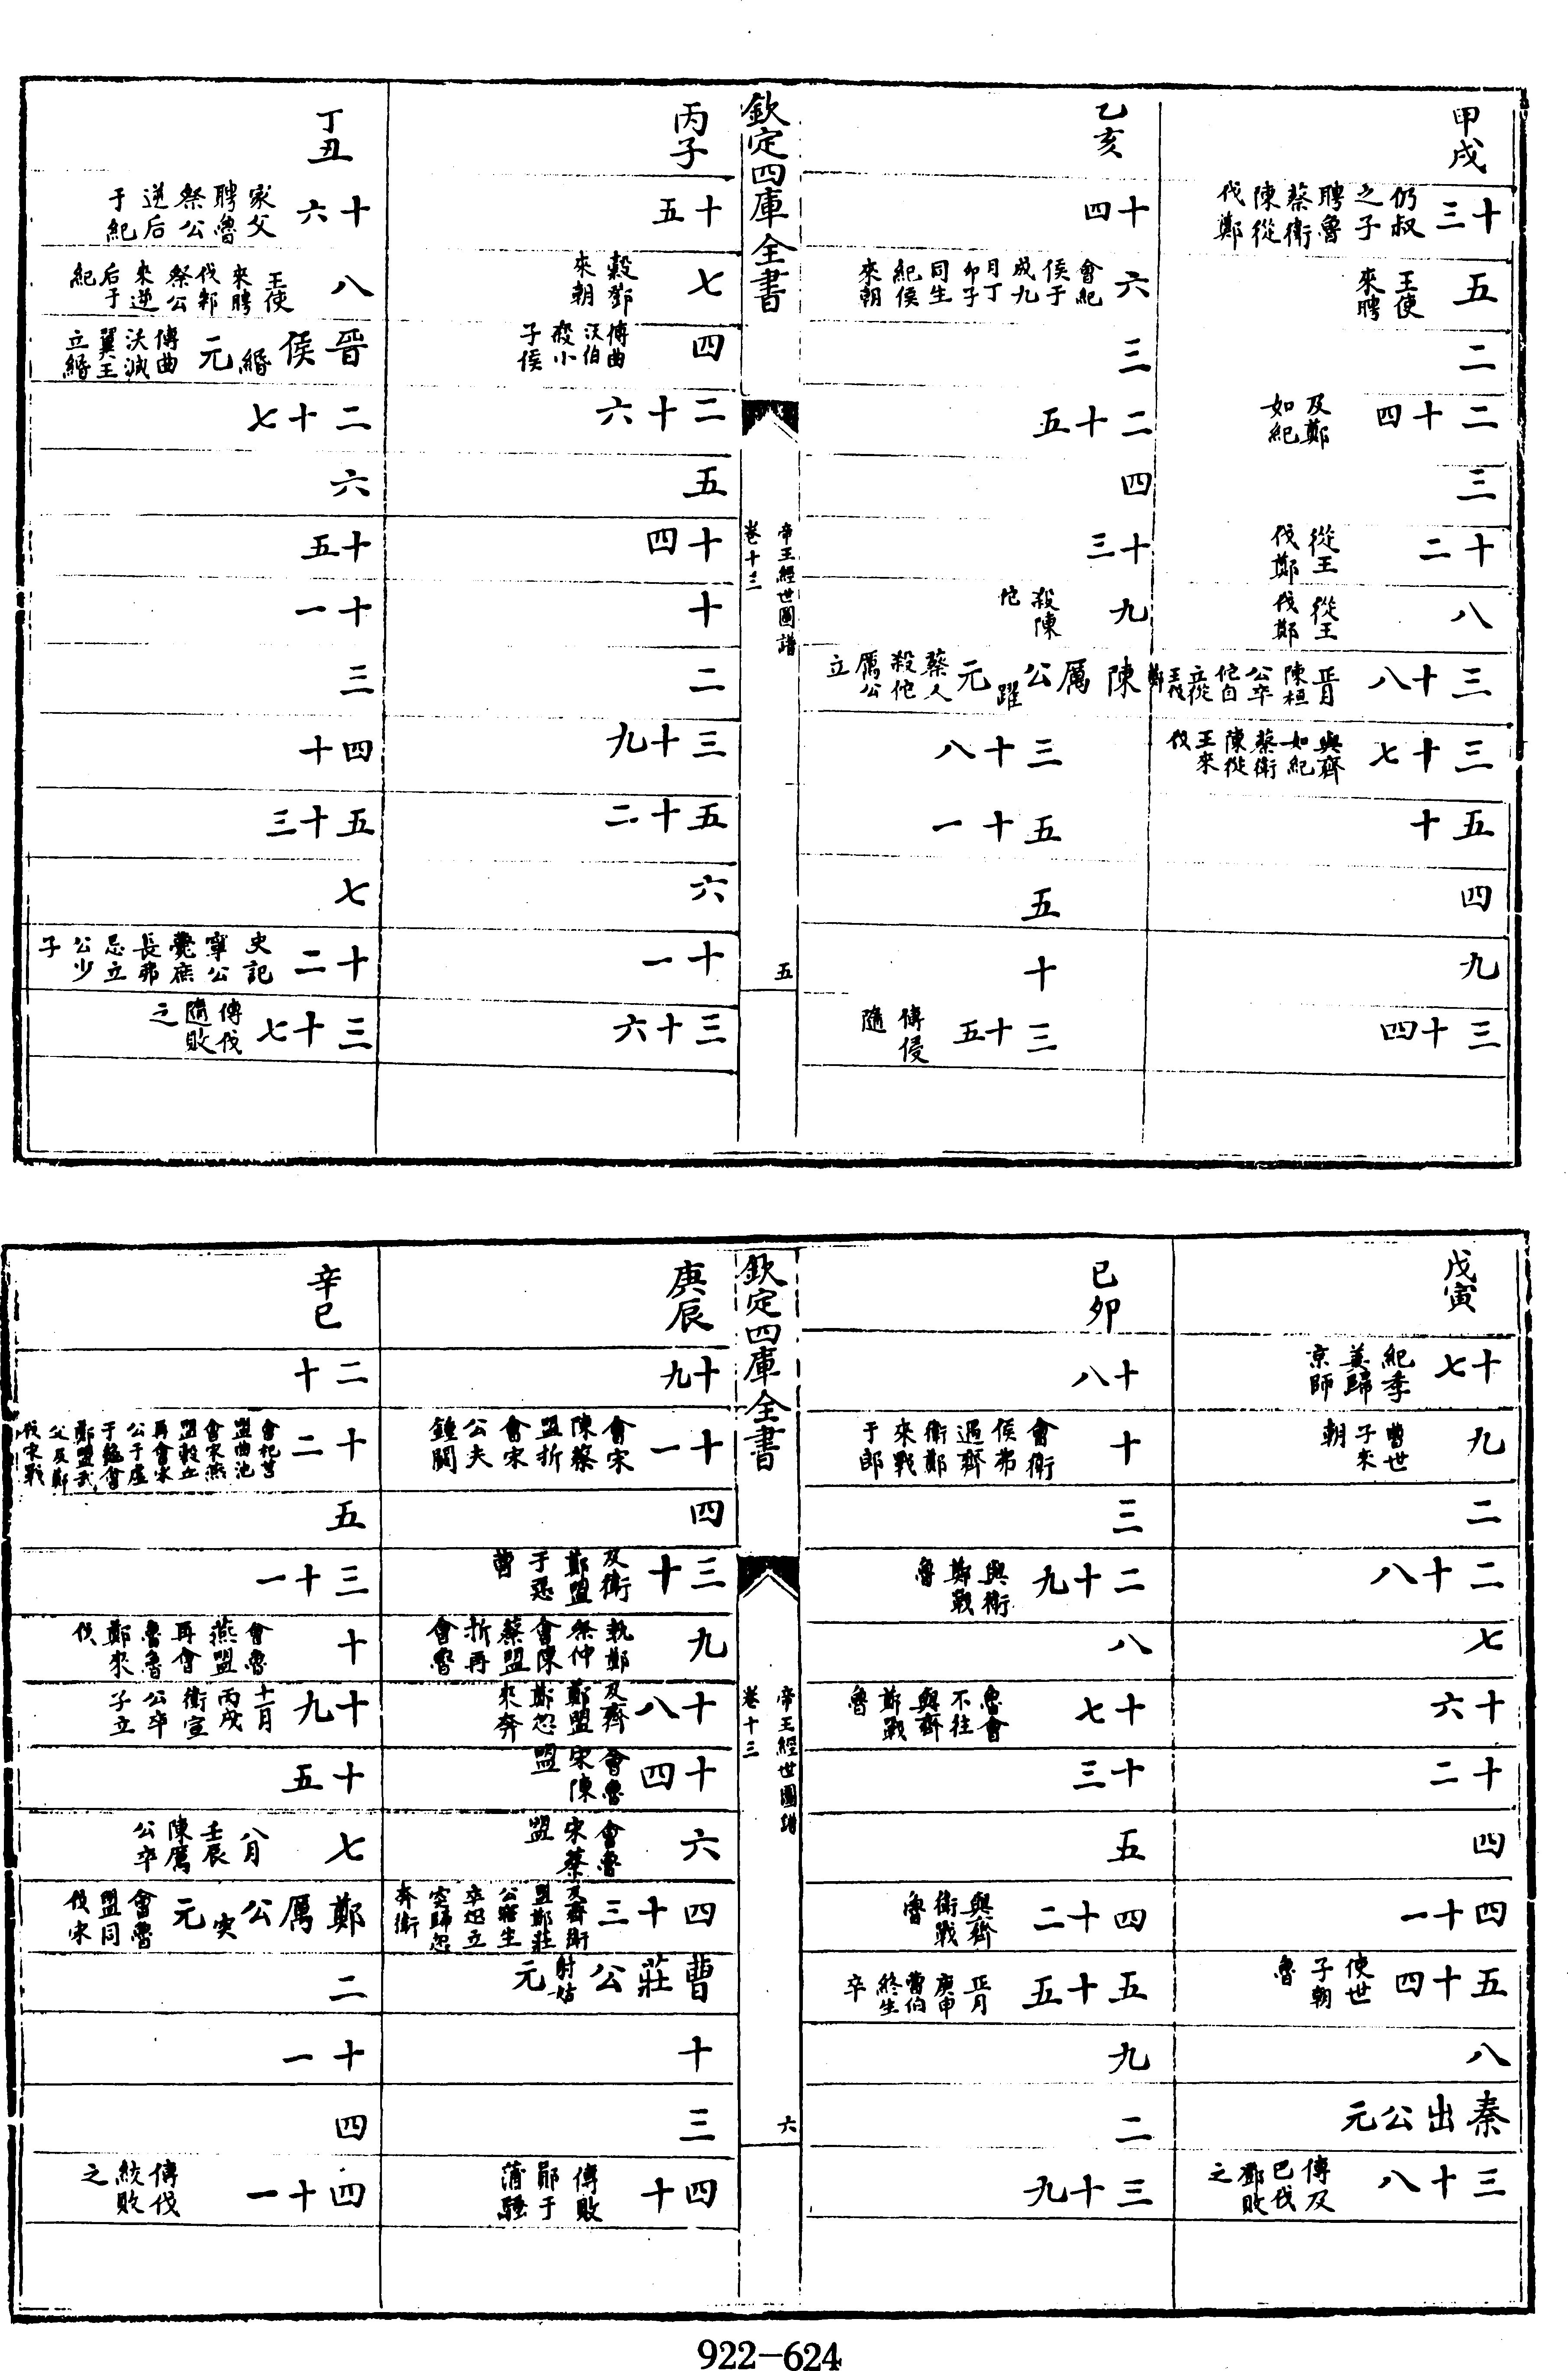 甲戌
十三 仍叔之子聘魯蔡衛陳從伐鄭
五 王使來聘
二
二十四 及鄭如紀
三
十二 從王伐鄭
八 從王伐鄭
三十八 正月陳桓公卒佗自立從王伐鄭
三十七 與齊如紀蔡衛陳從王來伐
五十
四
九
三十四
乙亥
十四
六 會紀侯于成九月丁卯子同生紀侯來朝
三
二十五
四
十三
九 殺陳佗
陳厲公躍元 蔡人殺佗厲公立
三十八
五十一
五
十
三十五 傳侵隨
欽定四庫全書
帝王經世圖譜
卷十三
五
丙子
十五
七 穀鄧來朝
四 傳曲沃伯殺小子侯
二十六
五
十四
十
二
三十九
五十二
六
十一
三十六
丁丑
十六 家父聘魯祭公逆后于紀
八 王使來聘伐邾祭公來逆后于紀
晉侯緡元 傳曲沃滅翼王立緡
二十七
六
十五
十一
三
四十
五十三
七
十二 史記寧公薨庶長弗忌立公少子
三十七 傳伐隨敗之
戊寅
十七 紀季姜歸京師
九 曹世子來朝
二
二十八
七
十六
十二
四
四十一
五十四 使世子朝魯
八
秦出公元
三十八 傳及巴伐鄧敗之
己卯
十八
十 會衛侯弗遇齊衛鄭來戰于郎
三
二十九 與衛鄭戰魯
八
十七 魯會不往與齊鄭戰魯
十三
五
四十二 與齊衛戰魯
五十五 正月庚申曹伯終生卒
九
二
三十九
欽定四庫全書
帝王經世圖譜
卷十三
六
庚辰
十九
十一 會宋陳蔡盟折會宋公夫鍾闞
四
三十 及衛鄭盟于惡曹
九 執鄭祭仲會陳蔡盟折再會魯
十八 及齊鄭盟鄭忽來奔
十四 會魯宋陳盟
六 會魯宋蔡盟
四十三 及齊衛盟鄭莊公寤生卒忽立突歸忽奔衛
曹莊公射姑元
十
三
四十 傳敗鄖于蒲騷
辛巳
二十
十二 會杞莒盟曲池會宋燕盟穀丘再會宋公于虛于龜會鄭盟武父及鄭伐宋戰
五
三十一
十 會魯燕盟再會魯魯鄭來伐
十九 十一月丙戌衛宣公卒子立
十五
七 八月壬辰陳厲公卒
鄭厲公突元 會魯盟同伐宋
二
十一
四
四十一 傳伐絞敗之
922-624